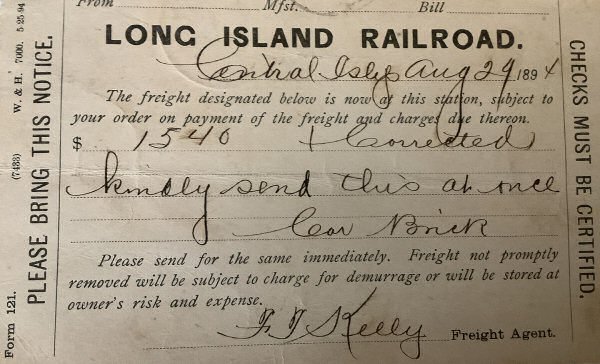 From Mfst. Bill
LONG ISLAND RAILROAD.
Central Islip Aug 29 1894
The freight designated below is now at this station, subject to
your order on payment of the freight and charges due thereon.
$ 1540 Corrected
kindly send this at once
Car Brick
Please send for the same immediately. Freight not promptly
removed will be subject to charge for demurrage or will be stored at
owner's risk and expense.
F J Kelly Freight Agent.
PLEASE BRING THIS NOTICE.
Form 121. (7483) W. & H. 7000. 5 25 94
CHECKS MUST BE CERTIFIED.